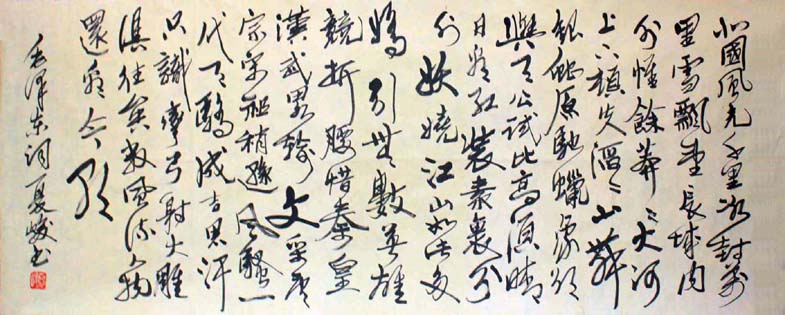 北國風光千里冰封萬
里雪飄望長城内
外惟餘莽〻大河
上下頓失滔〻山舞
銀蛇原馳蠟象欲
與天公試比高須晴
日看紅裝素裹分
外妖嬈江山如此多
嬌引無數英雄
競折腰惜秦皇
漢武略輸文采唐
宗宋祖稍遜風騷一
代天驕成吉思汗
只識彎弓射大雕
俱往矣數風流人物
還看今朝
毛澤东詞夏峻书